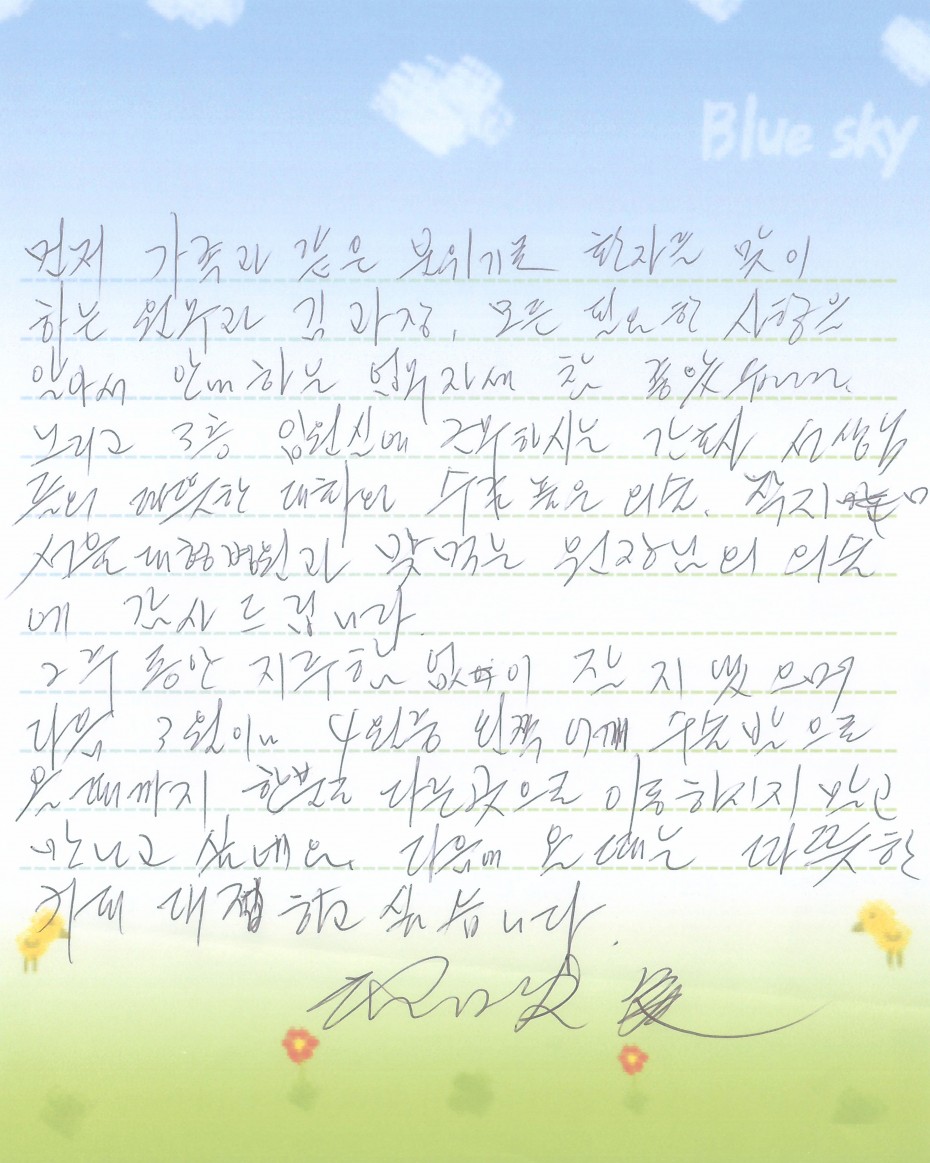 Blue sky
먼저 가족과 같은 분위기로 환자를 맞이
하는 원무과 김 과장, 모든 필요한 사항을
알아서 안내하는 업무자세 참 좋았
그리고 3층 입원실에 근무하시는 간호사 선생님
들의 따뜻한 대화와 수준 높은 의술, 작지만
서울 대형병원과 맞먹는 원장님의 의술
에 감사드립니다.
2주 동안 지루함 없이 잘 지냈으며
다음 3월이나 4월중 왼쪽 어깨 수술 받으로
올 때까지 한분도 다른곳으로 이동하시지 말고
만나고 싶네요. 다음에 올 때는 따뜻한
커피 대접하고 싶습니다.